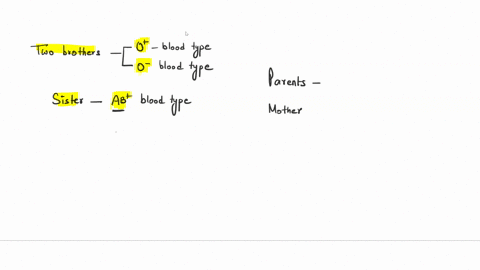 Two brothers — O+ — blood type
O- blood type
Sister — AB+ blood type
Parents —
Mother